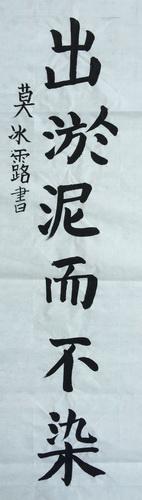 出淤泥而不染
莫冰露書